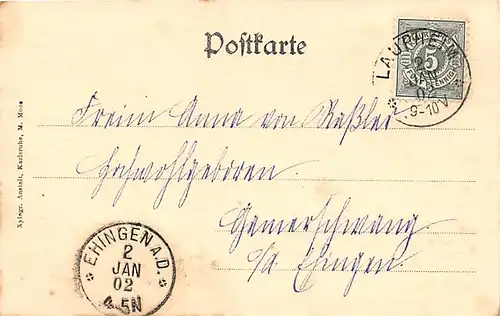 Postkarte
5
LAUPHEIM
2
JAN
02
9-10 V
Freiin Anna von Raßler
Hochwohlgeboren
Gamerschwang
o/a Ehingen.
EHINGEN A.D.
2
JAN
02
4-5N
Xylogr. Anstalt, Karlsruhe, M. Moos